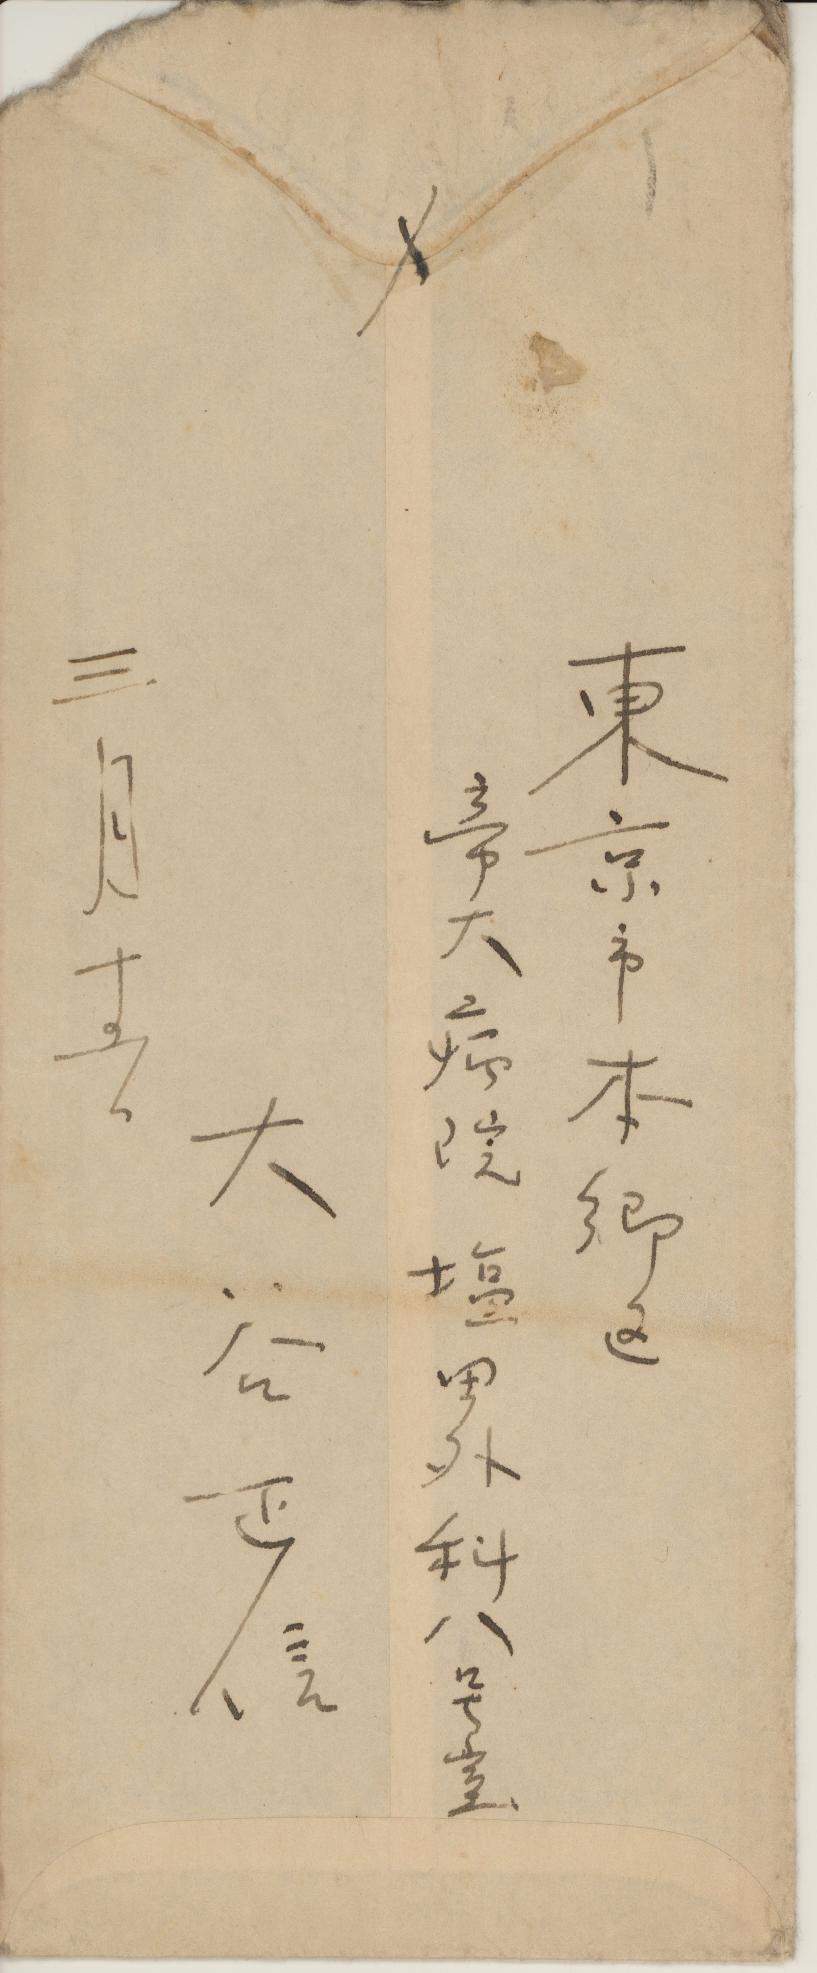 〆
東京市本郷区
帝大病院 塩田外科八号室
大谷正信
三月十五日